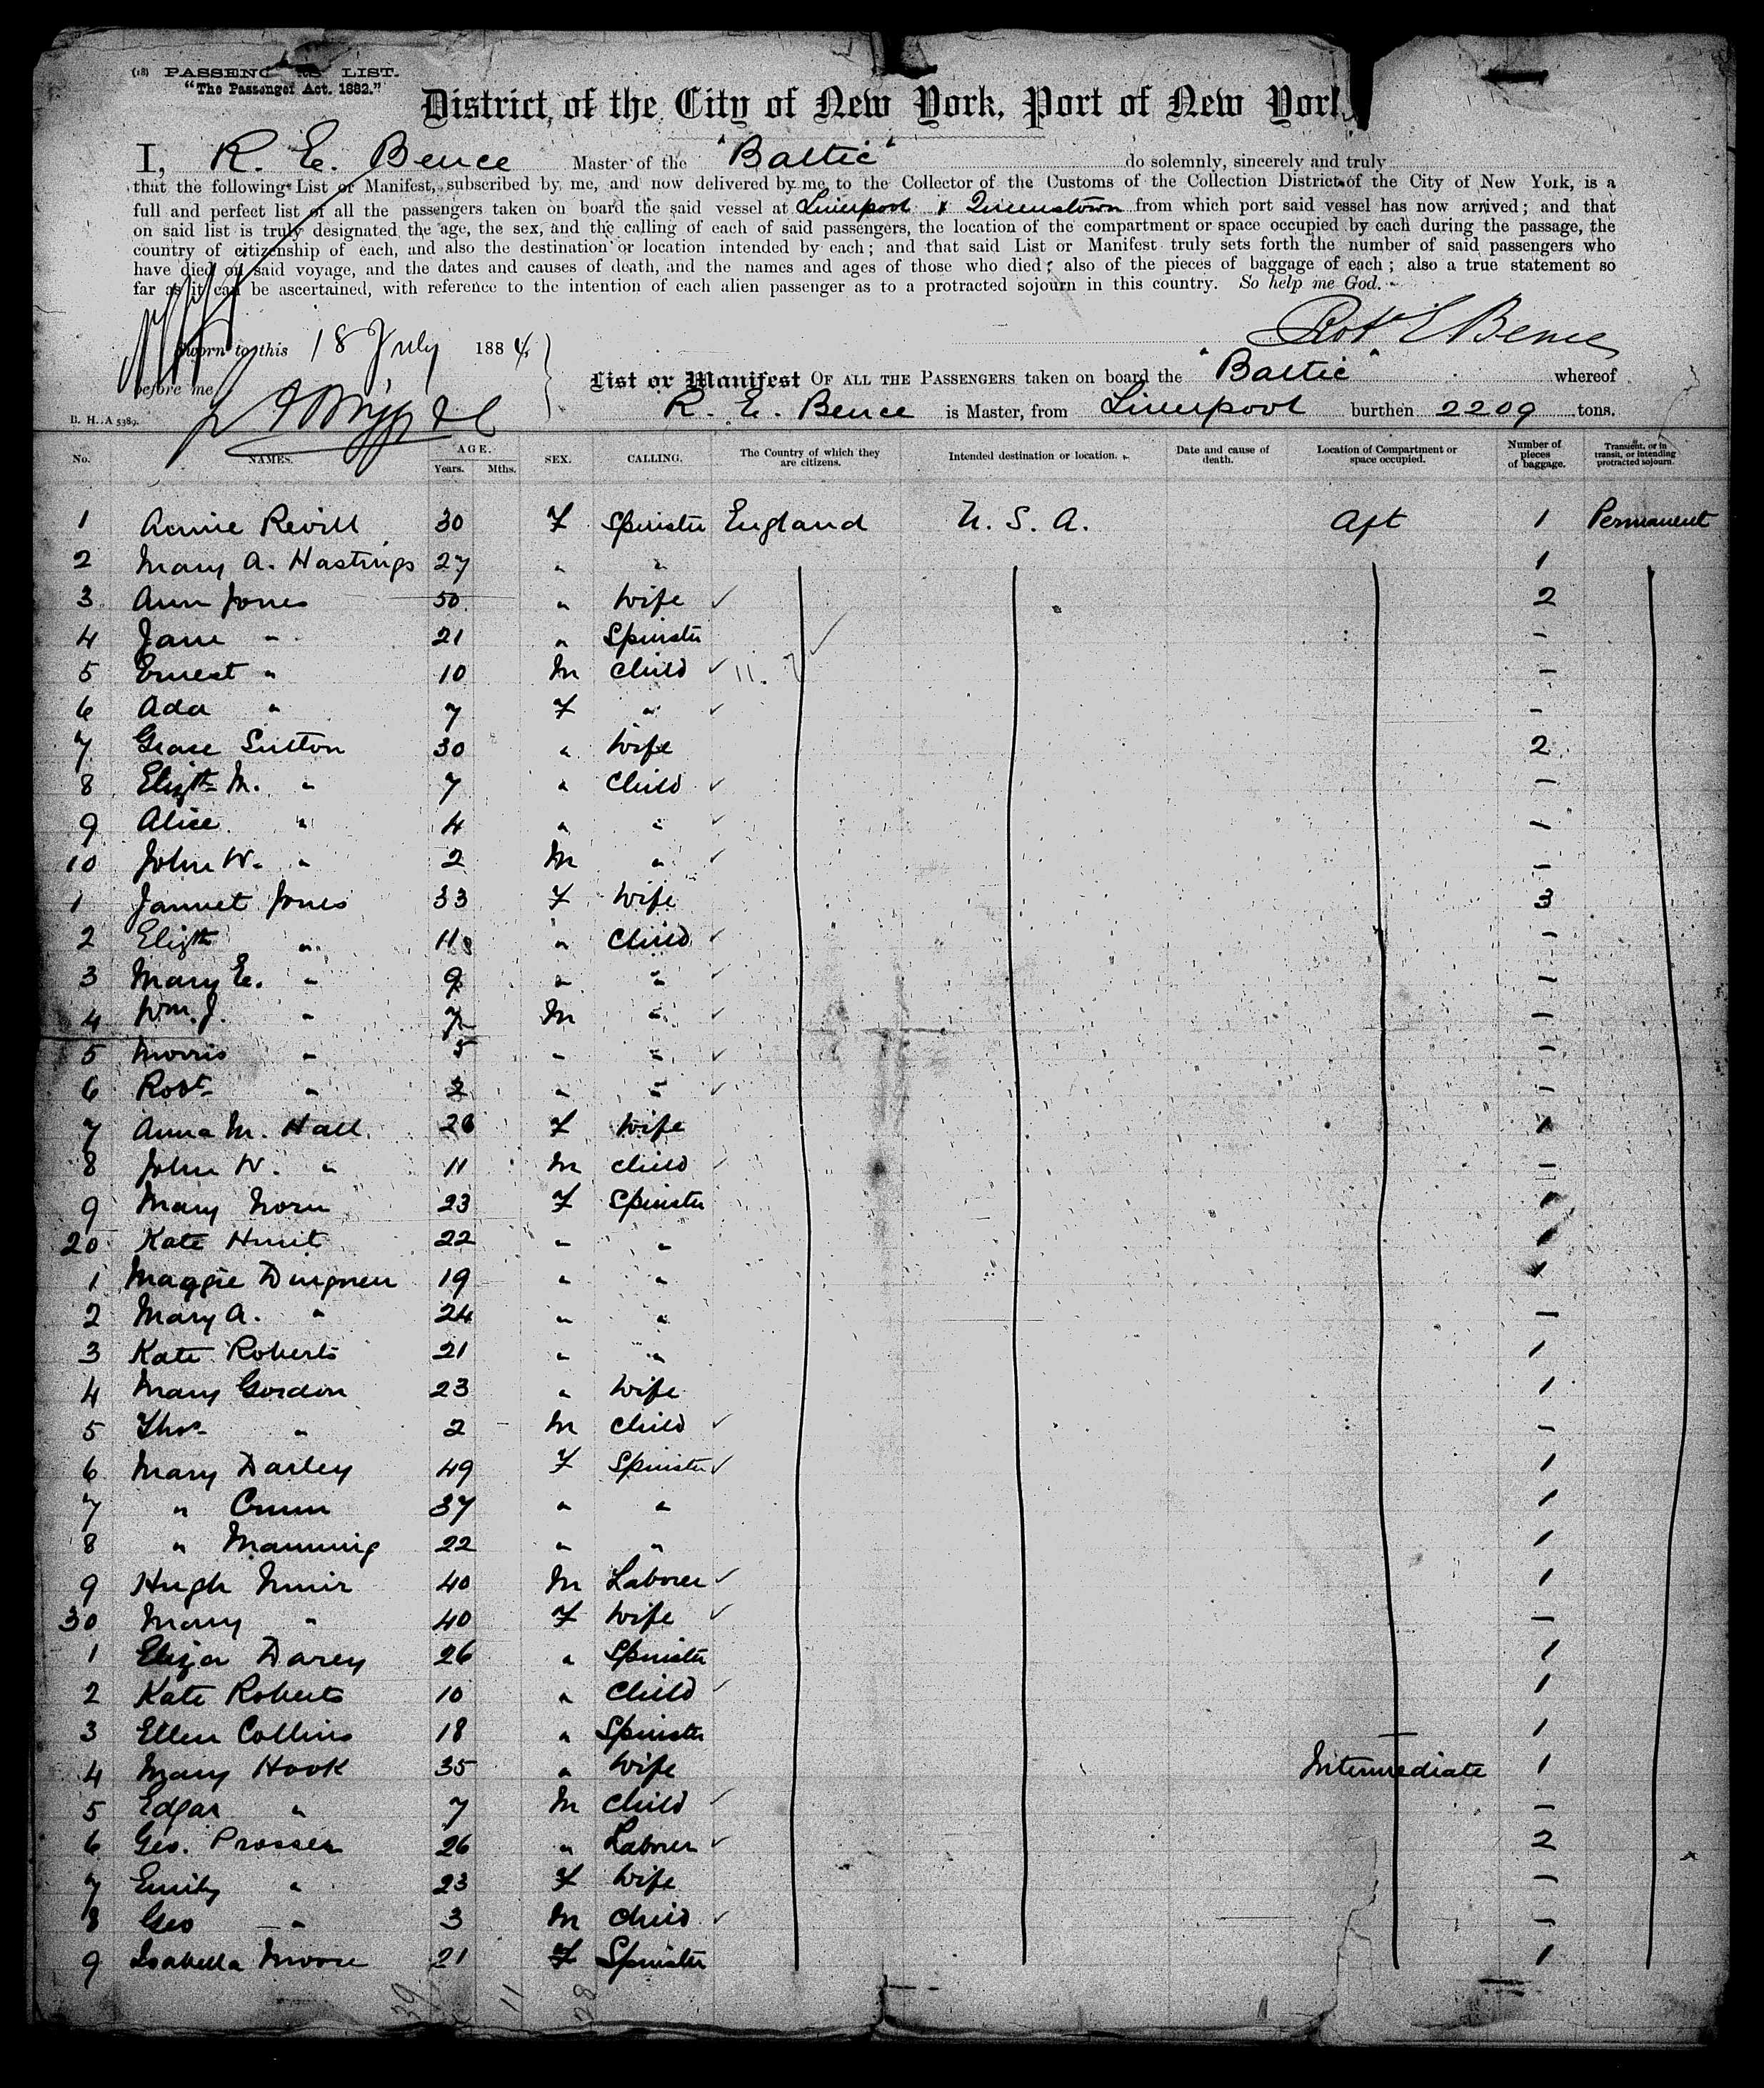 (18) PASSENG LIST.
"The Passenger Act, 1882."
District of the City of New York, Port of New York
I, R. E. Bence Master of the "Baltic" do solemnly, sincerely and truly
that the following List or Manifest, subscribed by me, and now delivered by me to the Collector of the Customs of the Collection District of the City of New York, is a
full and perfect list of all the passengers taken on board the said vessel at Liverpool & Queenstown from which port said vessel has now arrived; and that
on said list is truly designated the age, the sex, and the calling of each of said passengers, the location of the compartment or space occupied by each during the passage, the
country of citizenship of each, and also the destination or location intended by each; and that said List or Manifest truly sets forth the number of said passengers who
have died on said voyage, and the dates and causes of death, and the names and ages of those who died; also of the pieces of baggage of each; also a true statement so
far as it can be ascertained, with reference to the intention of each alien passenger as to a protracted sojourn in this country. So help me God.
Robt E Bence
Sworn to this 18 July 1884
before me
List or Manifest OF ALL THE PASSENGERS taken on board the "Baltic" whereof
B. H. A 5389. R. E. Bence is Master, from Liverpool burthen 2209 tons.
No. NAMES. AGE. Years. Mths. SEX. CALLING. The Country of which they are citizens. Intended destination or location. Date and cause of death. Location of Compartment or space occupied. Number of pieces of baggage. Transient, or in transit, or intending protracted sojourn.
1 Annie Revill 30 F Spinster England U. S. A. Aft 1 Permanent
2 Mary A. Hastings 27 " " 1
3 Ann Jones 50 " Wife 2
4 Jane " 21 " Spinster -
5 Ernest " 10 M Child 11. -
6 Ada " 7 F " -
7 Grace Sutton 30 " Wife 2
8 Elizth M. " 7 " Child -
9 Alice " 4 " " -
10 John W. " 2 M " -
1 Jannet Jones 33 F Wife 3
2 Elizth " 11 " Child -
3 Mary E. " 9 " " -
4 Wm. J. " 7 M " -
5 Morris " 5 " " -
6 Robt " 2 " " -
7 Anna M. Hall 26 F Wife 1
8 John W. " 11 M Child -
9 Mary Horn 23 F Spinster 1
20 Kate Hunt 22 " " 1
1 Maggie Duignen 19 " " 1
2 Mary A. " 24 " " -
3 Kate Roberts 21 " " 1
4 Mary Gordon 23 " Wife 1
5 Thos " 2 M Child -
6 Mary Darley 49 F Spinster 1
7 " 37 " " 1
8 " Manning 22 " " 1
9 Hugh Muir 40 M Laborer 1
30 Mary " 40 F Wife -
1 Eliza Darey 26 " Spinster 1
2 Kate Roberts 10 " Child 1
3 Ellen Collins 18 " Spinster 1
4 Mary Hook 35 " Wife Intermediate 1
5 Edgar " 7 M Child -
6 Geo. Prosser 26 " Laborer 2
7 Emily " 23 F Wife -
8 Geo " 3 M Child -
9 Isabella Moore 21 F Spinster 1
39 11 28